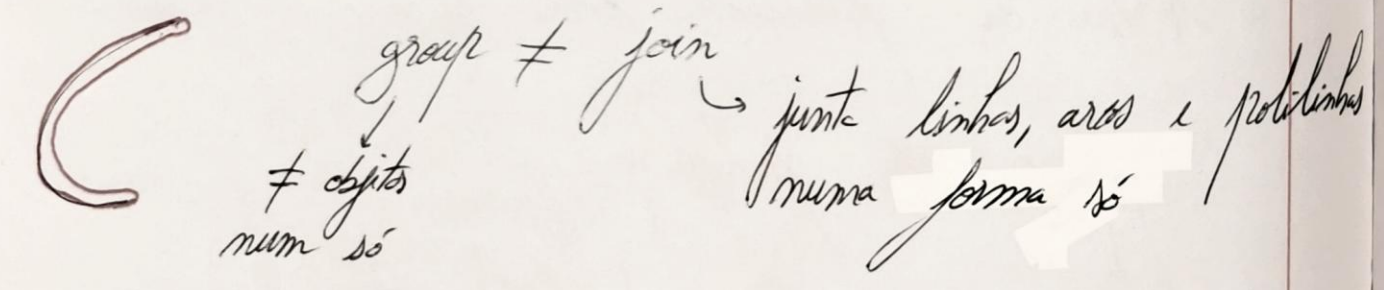 group ≠ join
junta linhas, arcos e polilinhas
numa forma só
≠ objetos
num só